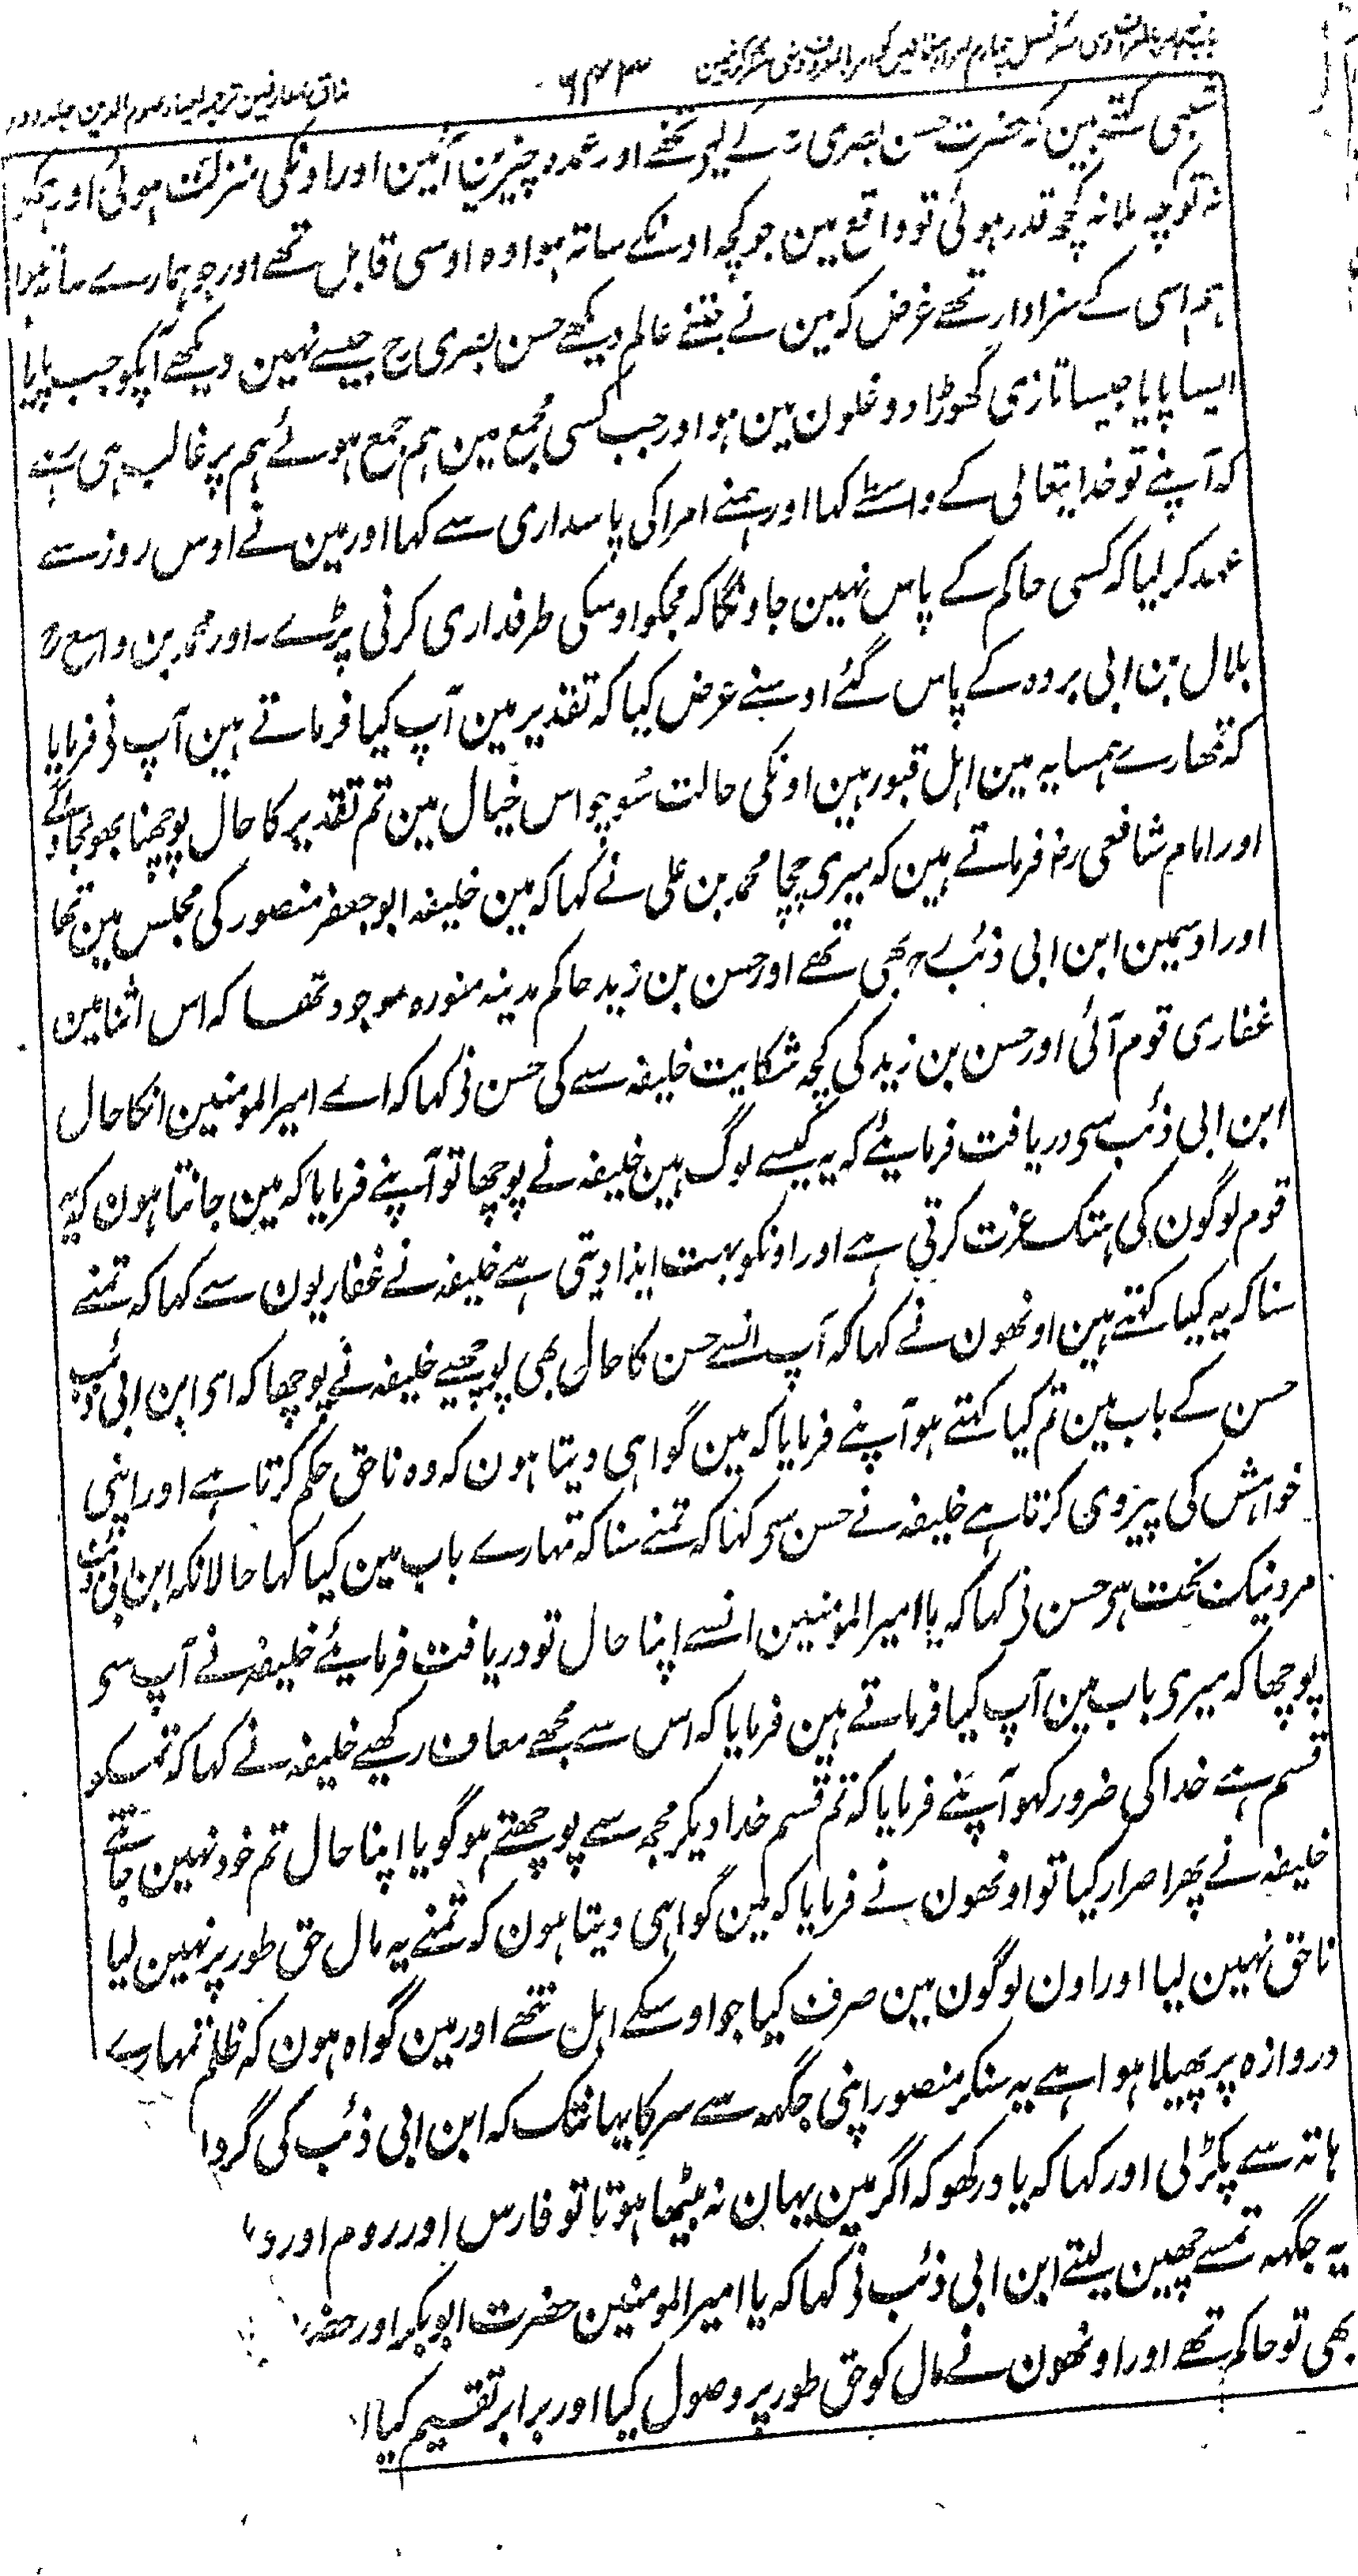 ۶۴۳
مذاق العارفین ترجمہ احیاء علوم الدین جلد دوم
شعبی کہتے ہین کہ حضرت حسن بصری رح کے لیے تحفے اور عمدہ چیزین آئین اور اونکی منزلت ہوئی اور ہمکو
نہ تو کچھ ملا نہ کچھ قدر ہوئی تو واقع مین جو کچھ اونکے ساتہ ہوا وہ اوسی قابل تھے اور جو ہمارے ساتہ ہوا
ہم اسی کے سزاوار تھے غرض کہ مین نے جتنے عالم دیکھے حسن بصری رح جیسے نہین دیکھے آپکو جب پایا
ایسا پایا جیسا تازی گھوڑا دوغلون مین ہو اور جب کسی مجمع مین ہم جمع ہوئے ہم پر غالب ہی رہے
کہ آپنے تو خدایتعالی کے واسطے کہا اور ہمنے امرا کی پاسداری سے کہا اور مین نے اوس روز سے
عہد کر لیا کہ کسی حاکم کے پاس نہین جاونگا کہ مجکو اوسکی طرفداری کرنی پڑے ۔ اور محمد بن واسع رح
بلال بن ابی بردہ کے پاس گئے اوسنے عرض کیا کہ تقدیر مین آپ کیا فرماتے ہین آپ نی فرمایا
کہ تمھارے ہمسایہ مین اہل قبور ہین اونکی حالت سوچو اس خیال مین تم تقدیر کا حال پوچھنا بھولجاوگے
اور امام شافعی رض فرماتے ہین کہ میری چچا محمد بن علی نے کہا کہ مین خلیفہ ابو جعفر منصور کی مجلس مین تھا
اور اوسمین ابن ابی ذئب رح بھی تھے اور حسن بن زید حاکم مدینہ منورہ موجود تھا کہ اس اثنا مین
غفاری قوم آئی اور حسن بن زید کی کچہ شکایت خلیفہ سے کی حسن نی کہا کہ اے امیر المومنین انکا حال
ابن ابی ذئب سی دریافت فرمایئے کہ یہ کیسے لوگ ہین خلیفہ نے پوچھا تو آپنے فرمایا کہ مین جانتا ہون کہ یہ
قوم لوگون کی ہتک عزت کرتی ہے اور اونکو بہت ایذا دیتی ہے خلیفہ نے غفاریون سے کہا کہ تمنے
سنا کہ یہ کیا کہتے ہین اونھون نے کہا کہ آپ انسے حسن کا حال بھی پوچھیے خلیفہ نے پوچھا کہ ای ابن ابی ذئب
حسن کے باب مین تم کیا کہتے ہو آپنے فرمایا کہ مین گواہی دیتا ہون کہ وہ ناحق حکم کرتا ہے اور اپنی
خواہش کی پیروی کرتا ہے خلیفہ نے حسن سی کہا کہ تمنے سنا کہ تمہارے باب مین کیا کہا حالانکہ ابن ابی ذئب
مرد نیک بخت ہی حسن نی کہا کہ یا امیر المومنین انسے اپنا حال تو دریافت فرمایئے خلیفہ نے آپ سی
پوچھا کہ میری باب مین آپ کیا فرماتے ہین فرمایا کہ اس سے مجھے معاف رکھیے خلیفہ نے کہا کہ تمکو
قسم ہے خدا کی ضرور کہو آپنے فرمایا کہ تم قسم خدا دیکر مجہ سے پوچھتے ہو گویا اپنا حال تم خود نہین جانتے
خلیفہ نے پھر اصرار کیا تو اونھون نے فرمایا کہ مین گواہی دیتا ہون کہ تمنے یہ مال حق طور پر نہین لیا
ناحق نہین لیا اور اون لوگون مین صرف کیا جو اوسکے اہل نتھے اور مین گواہ ہون کہ ظلم تمہارے
دروازہ پر پھیلا ہوا ہے یہ سنکر منصور اپنی جگہہ سے سرکا یہانتک کہ ابن ابی ذئب کی گردن
ہاتہ سے پکڑ لی اور کہا کہ یاد رکھو کہ اگر مین یہان نہ بیٹھا ہوتا تو فارس اور روم اور
یہ جگہہ تمسے چھین لیتے ابن ابی ذئب نی کہا کہ یا امیر المومنین حضرت ابوبکر اور
بھی تو حاکم تھے اور اونھون نے مال کو حق طور پر وصول کیا اور برابر تقسیم کیا